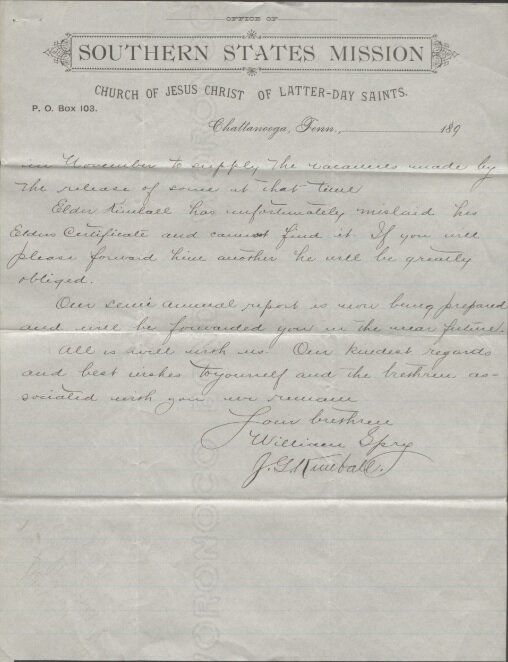 OFFICE OF
SOUTHERN STATES MISSION
CHURCH OF JESUS CHRIST OF LATTER-DAY SAINTS.
P. O. Box 103.
Chattanooga, Tenn., 189
in November to supply the vacancies made by
the release of some at that time
Elder Kimball has unfortunately mislaid his
Elders Certificate and cannot find it. If you will
please forward him another he will be greatly
obliged.
Our semi annual report is now being prepared
and will be forwarded you in the near future.
All is well with us. Our kindest regards
and best wishes to yourself and the brethren as-
sociated with you, we remain
Your brethren
William Spry
J. G. Kimball.